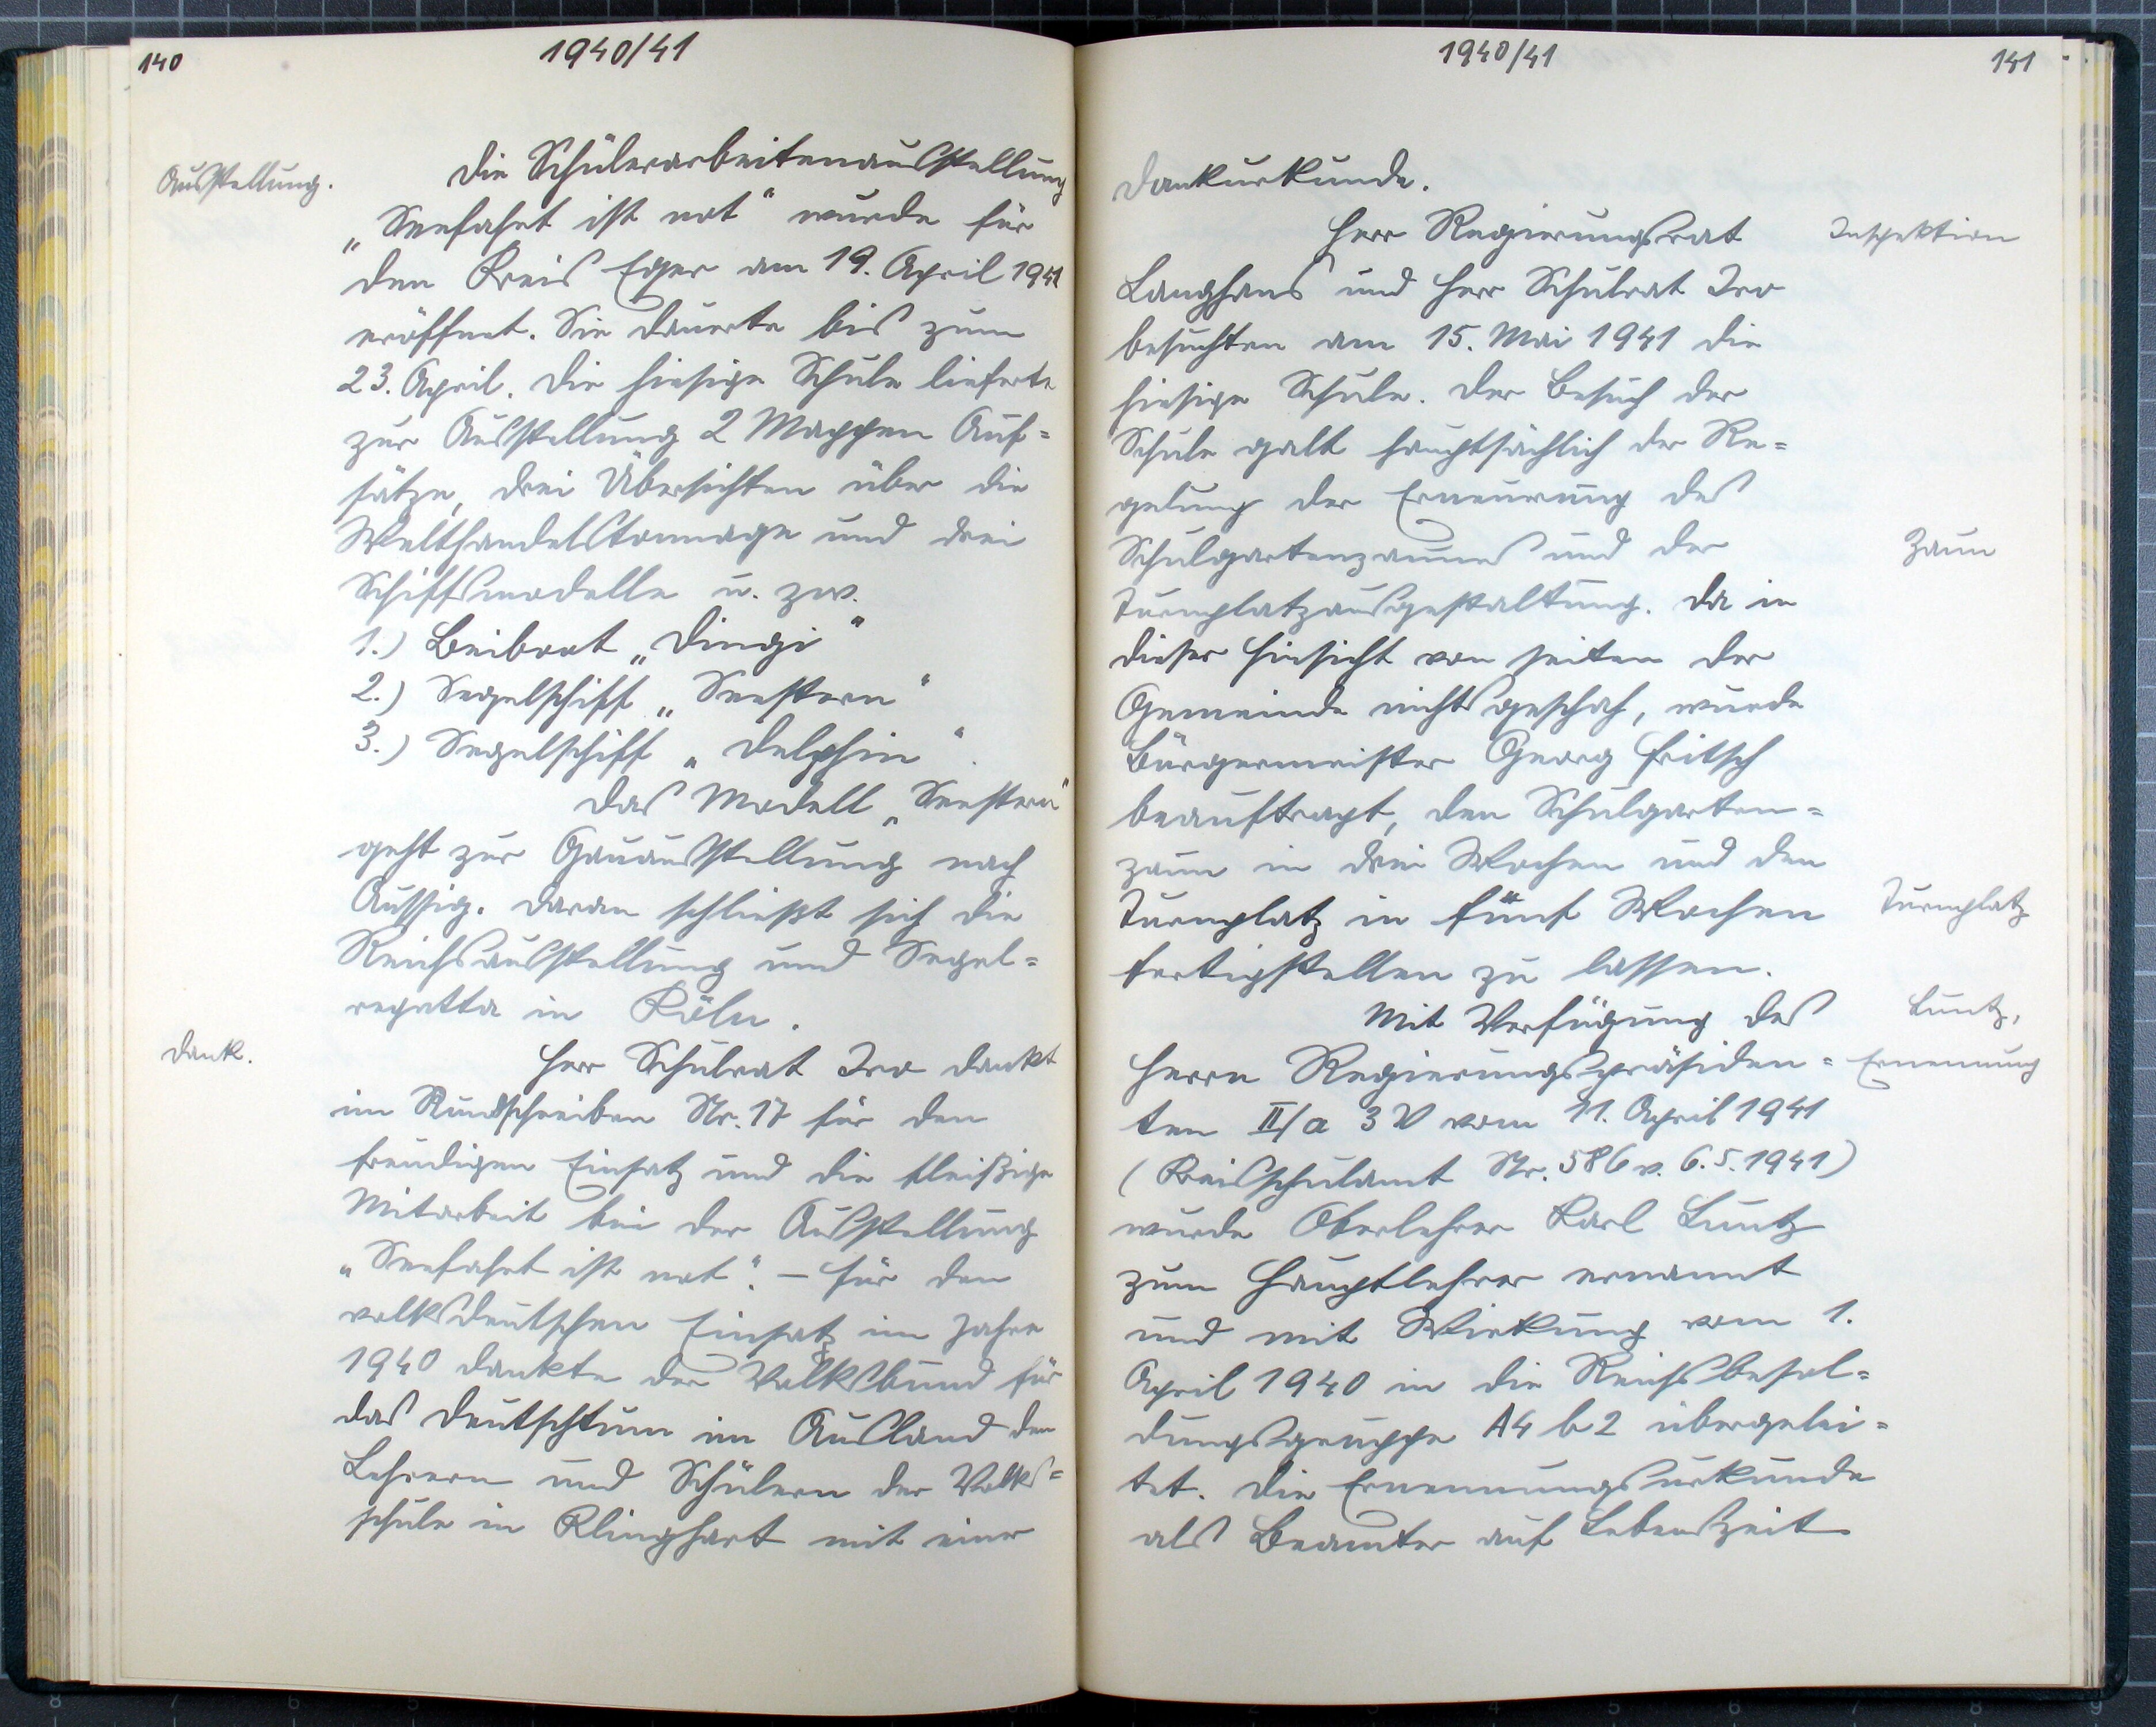 140
1940/41
Ausstellung.
Die Schülerarbeitenausstellung
„Seefahrt ist not" wurde für
den Kreis Eger am 19. April 1941
eröffnet. Sie dauerte bis zum
23. April. Die hiesige Schule lieferte
zur Ausstellung 2 Mappen Auf=
sätze, drei Übersichten über die
Welthandelstonnage und drei
Schiffsmodelle u. zw.
1.) Beiboot „Dingi"
2.) Segelschiff „Seestern"
3.) Segelschiff „Delphin".
Das Modell „Seestern"
geht zur Gauausstellung nach
Aussig. Daran schließt sich die
Reichsausstellung und Segel=
regatta in Köln.
Dank.
Herr Schulrat Iro dankt
im Rundschreiben Nr. 17 für den
freudigen Einsatz und die fleißige
Mitarbeit bei der Ausstellung
„Seefahrt ist not". – Für den
volksdeutschen Einsatz im Jahre
1940 dankte der Volksbund für
das Deutschtum im Ausland den
Lehrern und Schülern der Volks=
schule in Klinghart mit einer
1940/41
141
Dankurkunde.
Herr Regierungsrat
Inspektion
Langhans und Herr Schulrat Iro
besuchten am 15. Mai 1941 die
hiesige Schule. Der Besuch der
Schule galt hauptsächlich der Re=
gelung der Erneuerung des
Schulgartenzaunes und der
Zaun
Turnplatzausgestaltung. Da in
dieser Hinsicht von seiten der
Gemeinde nichts geschah, wurde
Bürgermeister Georg Fritsch
beauftragt, den Schulgarten=
zaun in drei Wochen und den
Turnplatz in fünf Wochen
Turnplatz
fertigstellen zu lassen.
Mit Verfügung des
Luntz,
Herrn Regierungspräsiden=
Ernennung
ten II/a 3 V vom 11. April 1941
(Kreisschulamt Nr. 586 v. 6.5.1941)
wurde Oberlehrer Karl Luntz
zum Hauptlehrer ernannt
und mit Wirkung vom 1.
April 1940 in die Reichsbesol=
dungsgruppe A4 b2 übergelei=
tet. Die Ernennungsurkunde
als Beamter auf Lebenszeit